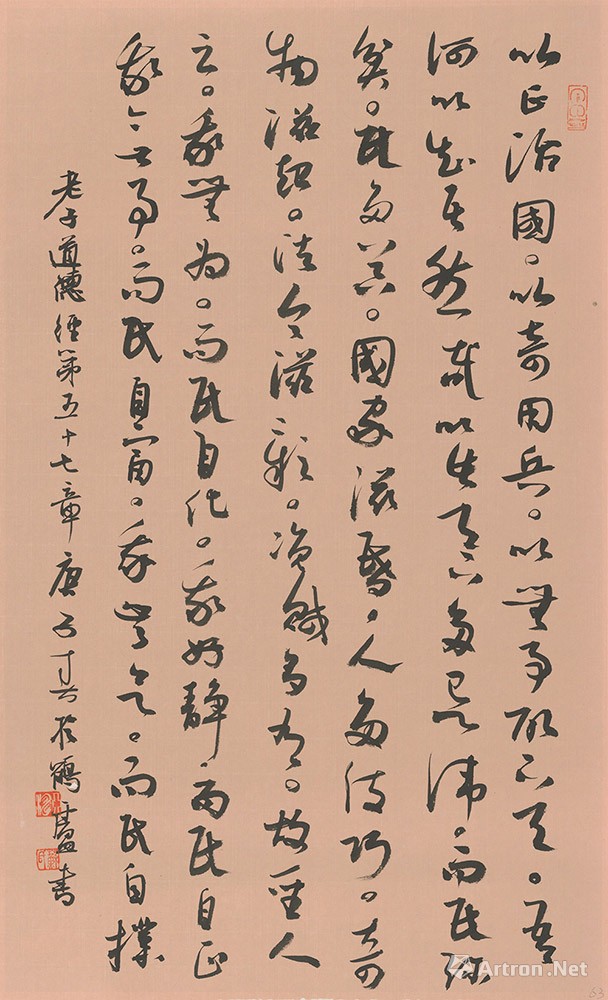 以正治國。以奇用兵。以無事取天下。吾
何以知其然哉以此天下多忌諱。而民弥
貧。民多利器。國家滋昏、人多伎巧。奇
物滋起。法令滋彰。盜賊多有。故聖人
云。我無為。而民自化。我好靜、而民自正
我無事。而民自富。我無欲。而民自樸
老子道德經第五十七章 庚子春於鶴廬書
Artron.Net
53